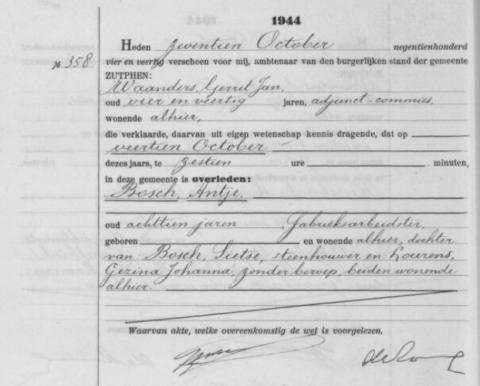 1944
Heden zeventien October negentienhonderd
№ 358 vier en veertig verscheen voor mij, ambtenaar van den burgerlijken stand der gemeente
ZUTPHEN:
Waanders, Gerrit Jan,
oud vier en veertig jaren, adjunct-commies
wonende alhier,
die verklaarde, daarvan uit eigen wetenschap kennis dragende, dat op
veertien October
dezes jaars, te zestien ure minuten,
in deze gemeente is overleden:
Bosch, Antje,
oud achttien jaren, fabrieksarbeidster,
geboren en wonende alhier, dochter
van Bosch, Sietse, steenhouwer en Lourens,
Gezina Johanna, zonder beroep, beiden wonende
alhier.
Waarvan akte, welke overeenkomstig de wet is voorgelezen.